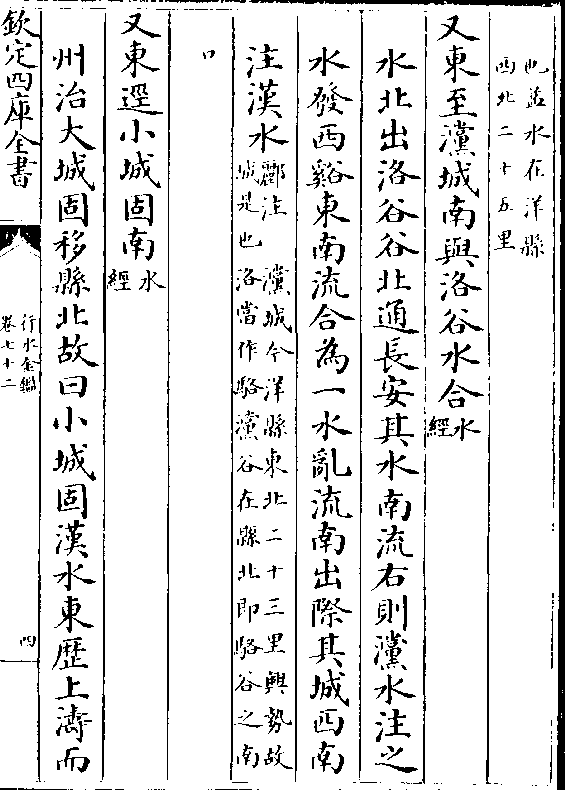 也益水在洋縣
西北二十五里
又東至灙城南與洛谷水合水
經
水北出洛谷谷北通長安其水南流右則灙水注之
水發西谿東南流合為一水亂流南出際其城西南
注漢水酈注 灙城今洋縣東北二十三里興勢故
城是也洛當作駱灙谷在縣北即駱谷之南
口
又東逕小城固南水
經
州治大城固移縣北故曰小城固漢水東歴上濤而
欽定四庫全書
行水金鑑
卷七十二
四